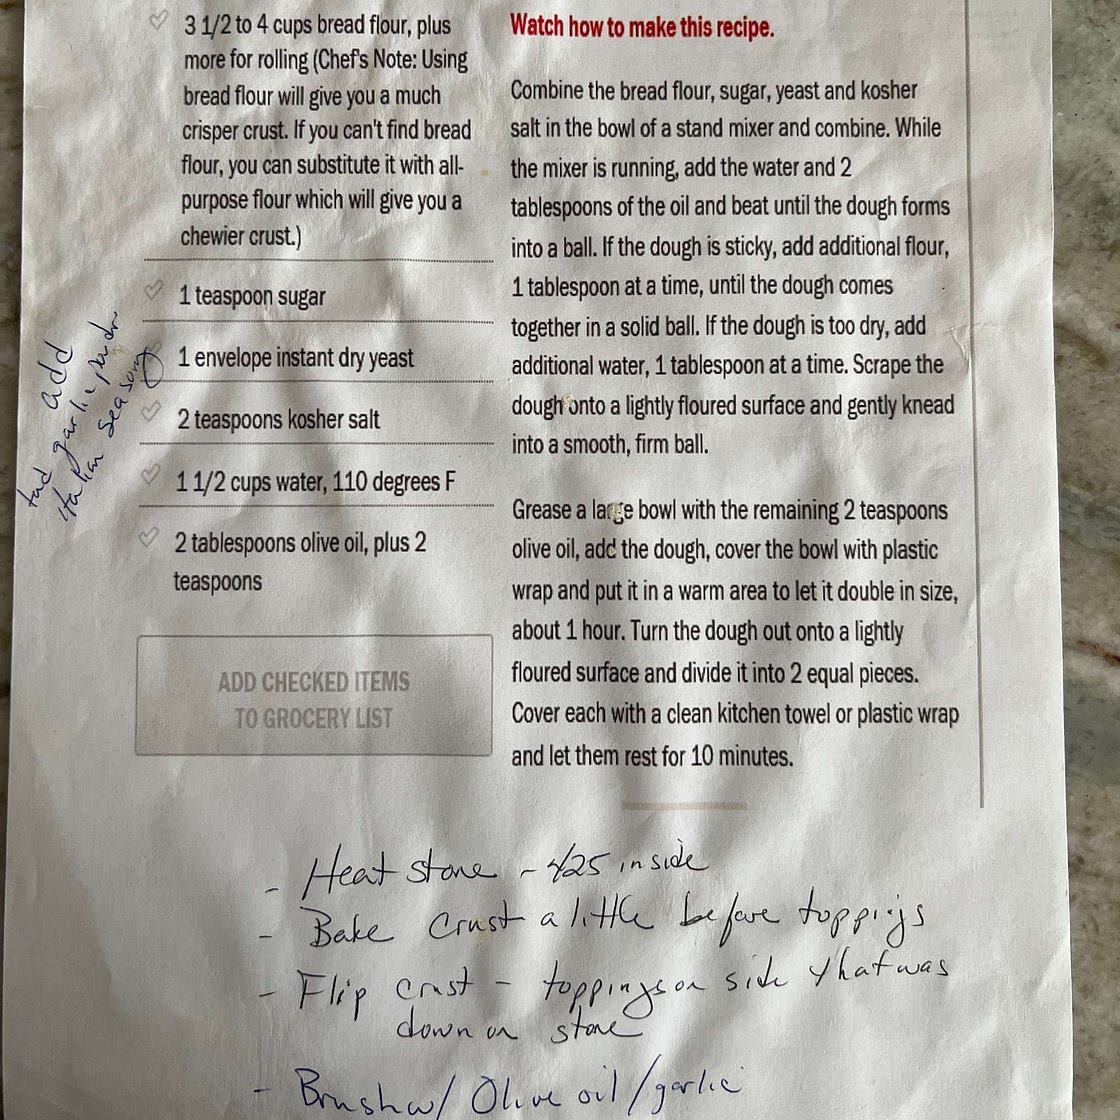 3 1/2 to 4 cups bread flour, plus
more for rolling (Chef's Note: Using
bread flour will give you a much
crisper crust. If you can't find bread
flour, you can substitute it with all-
purpose flour which will give you a
chewier crust.)
1 teaspoon sugar
1 envelope instant dry yeast
2 teaspoons kosher salt
1 1/2 cups water, 110 degrees F
2 tablespoons olive oil, plus 2
teaspoons
ADD CHECKED ITEMS
TO GROCERY LIST
add
garlic powder
italian seasong
Watch how to make this recipe.
Combine the bread flour, sugar, yeast and kosher
salt in the bowl of a stand mixer and combine. While
the mixer is running, add the water and 2
tablespoons of the oil and beat until the dough forms
into a ball. If the dough is sticky, add additional flour,
1 tablespoon at a time, until the dough comes
together in a solid ball. If the dough is too dry, add
additional water, 1 tablespoon at a time. Scrape the
dough onto a lightly floured surface and gently knead
into a smooth, firm ball.
Grease a large bowl with the remaining 2 teaspoons
olive oil, add the dough, cover the bowl with plastic
wrap and put it in a warm area to let it double in size,
about 1 hour. Turn the dough out onto a lightly
floured surface and divide it into 2 equal pieces.
Cover each with a clean kitchen towel or plastic wrap
and let them rest for 10 minutes.
- Heat stone - 425 inside
- Bake crust a little before toppings
- Flip crust - toppings on side that was
down on stone
- Brush w/ Olive oil/garlic